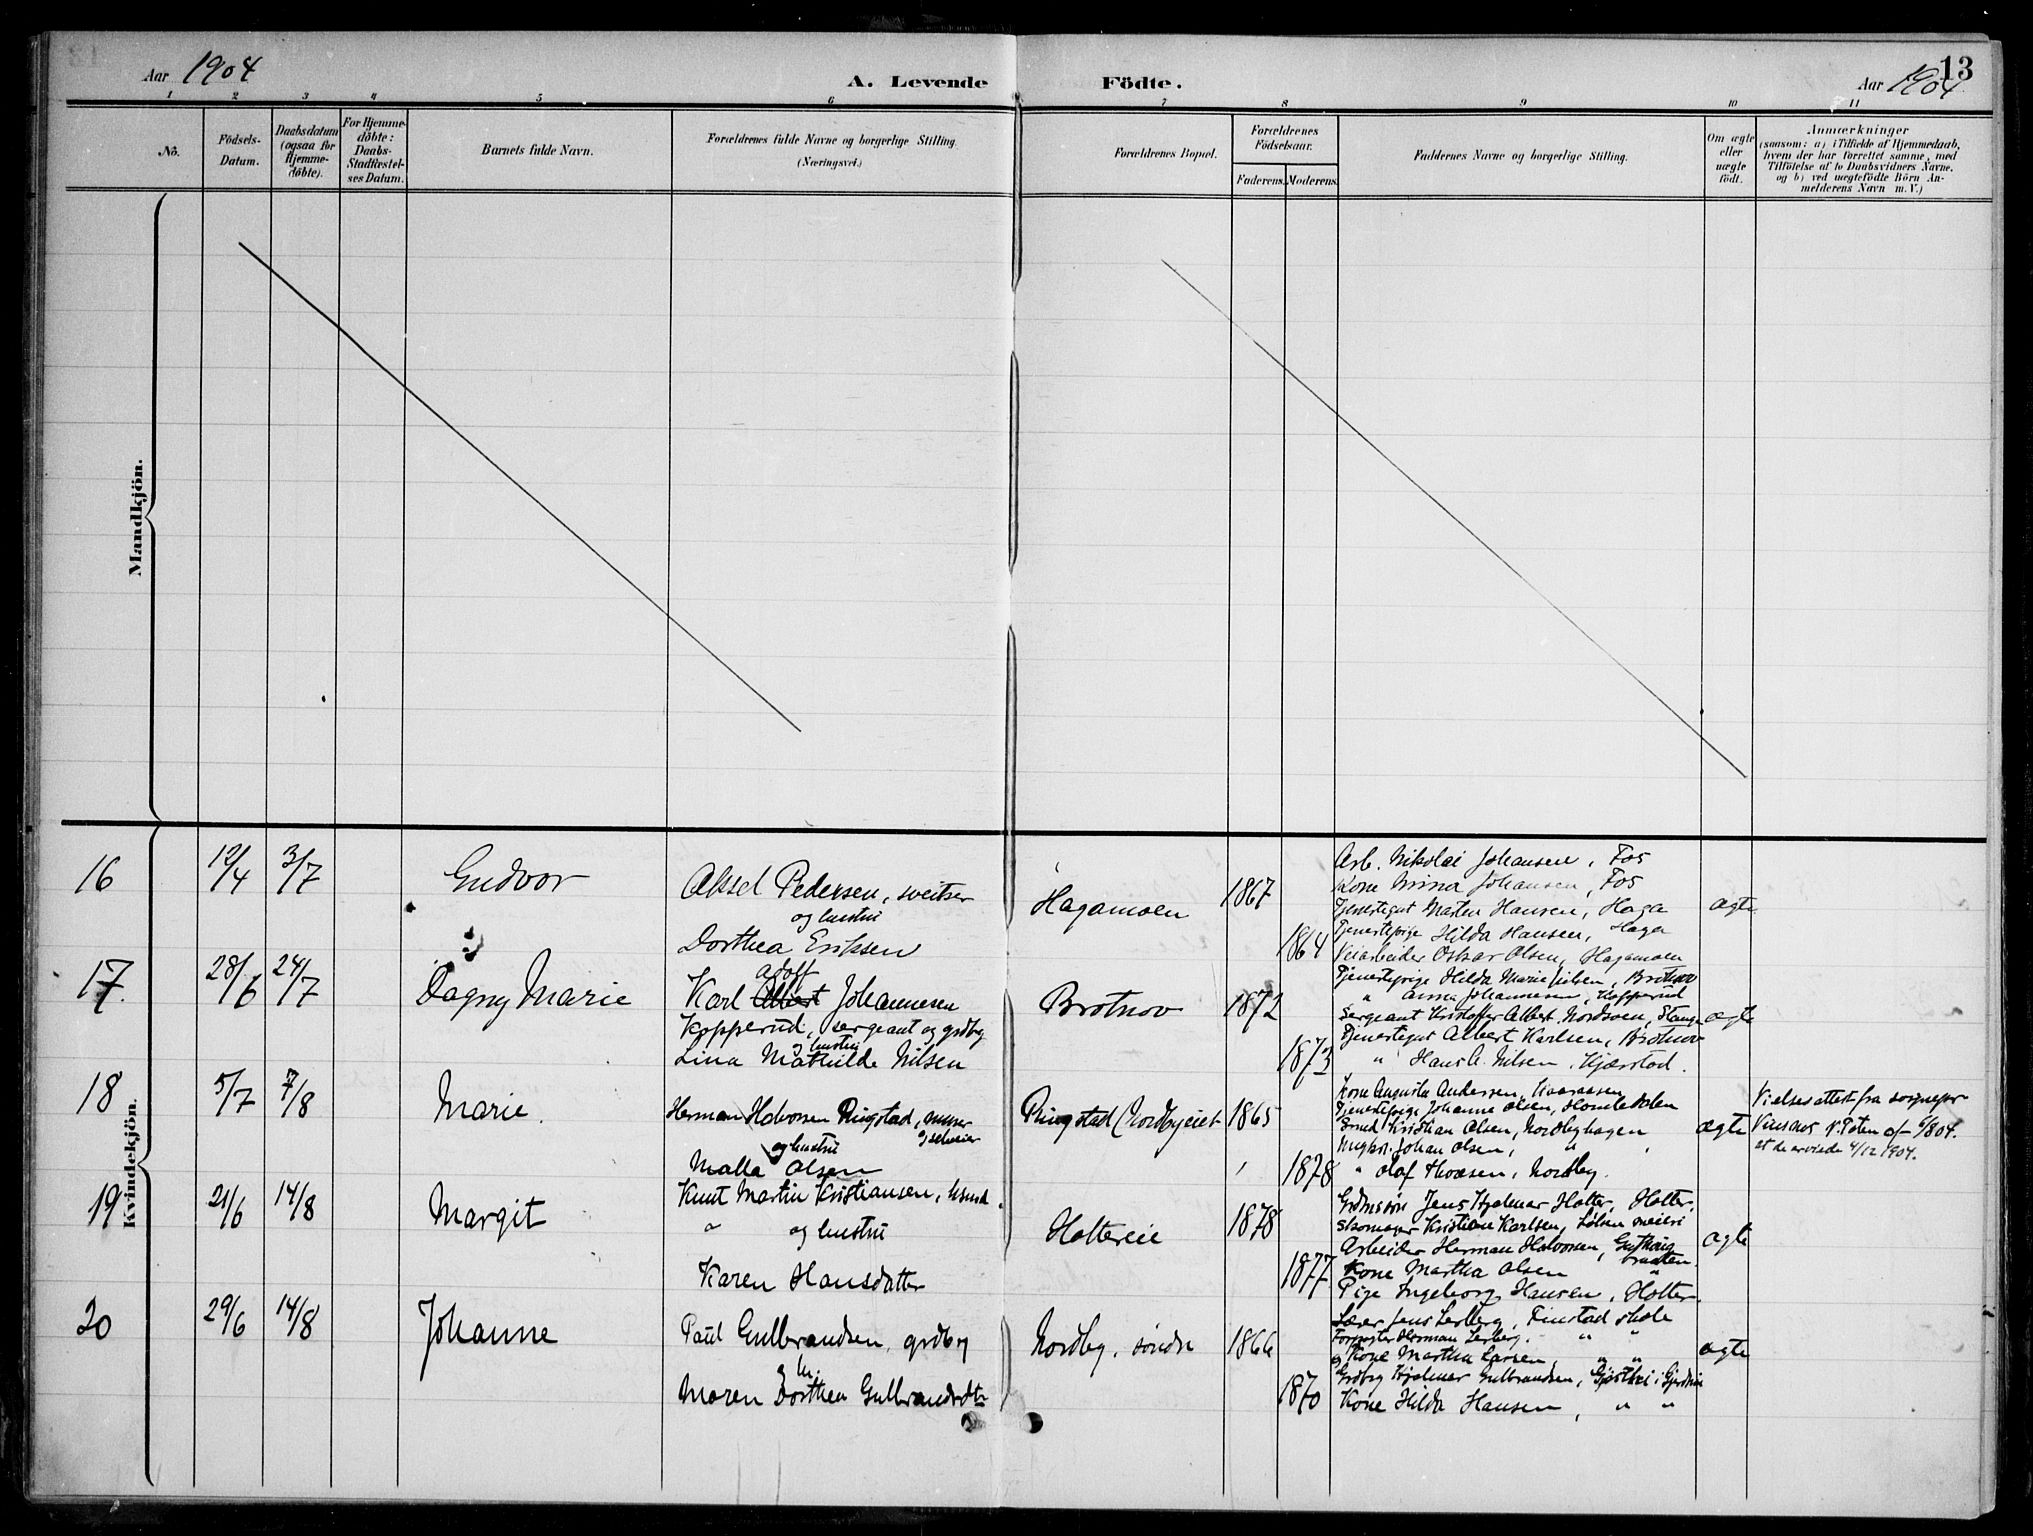 Aar 1904
A. Levende
Födte.
Aar 1904
13
1 2 3 4 5 6 7 8 9 10 11
Nô.
Födsels-
Datum.
Daabsdatum
(ogsaa for
Hjemme-
döbte).
For Hjemme-
döbte:
Daabs-
Stadfæstel-
ses Datum.
Barnets fulde Navn.
Forældrenes fulde Navne og borgerlige Stilling.
(Næringsvei.)
Forældrenes Bopæl.
Forældrenes
Födselsaar.
Faderens. Moderens.
Faddernes Navne og borgerlige Stilling.
Om ægte
eller
uægte
födt.
Anmærkninger
(saasom: a) i Tilfælde af Hjemmedaab,
hvem der har forrettet samme, med
Tilföielse af to Daabsvidners Navne.
og b) ved uægtefödte Börn An-
melderens Navn m. V.)
Mandkjön.
Kvindekjön.
16
12/4
3/7
Gudvor
Aksel Pedersen, sveitser
og hustru
Dorthea Eriksen
Hagamoen
1867
1864
Arb. Nikolai Johansen, Fos
Kone Mina Johansen, Fos
Tjenestegut Marten Hansen, Haga
Tjenestepige Hilda Hansen, Haga
Veiarbeider Oskar Olsen, Hagamoen
ægte
17.
28/6
24/7
Dagny Marie
adolf
Karl Albert Johannesen
Kopperud, sergeant og grdbr
og hustru
Lina Mathilde Nilsen
Brotnov
1872
1873
Tjenestepige Hilda Marie Nilsen, Brotnov
" Anna Johannesen, Kopperud
Sergeant Kristoffer Albert Nordsven, Stange
Tjenestegut Albert Karlsen, Brotnov
" Hans A. Nilsen, Kjærstad.
ægte
18
5/7
7/8
Marie.
Herman Halvorsen Ringstad, murer
og hustru
Malla Olsen
Ringstad (Nordbyeiet
1865
1878
Kone Augusta Andersen,
Tjenestepige Johanne Olsen, Homledalen
Smed Kristian Olsen, Nordbyhagen
Ungkar. Johan Olsen, "
" Olaf Thovsen, Nordby.
ægte
Vielsesattest fra sogneprest
V. Toten
19
21/6
14/8
Margit
Knut Martin Kristiansen, husmd.
" og hustru
Karen Hansdatter
Hottereie
1878
1877
Grdmsøn Jens Hjalmar Hotter, Hotter,
Skomager Kristian Karlsen, Løken meieri
Arbeider Herman Halvorsen,
Kone Martha Olsen "
Pige Ingeborg Hansen, Hotter.
ægte
20
29/6
14/8
Johanne
Paul Gulbrandsen, grdbr
og hu.
Maren Dorthea Gulbrandsdtr
Nordby, søndre
1866
1870
Lærer Jens Lerberg, Finstad skole
Forpagter Herman Lerberg. " "
og Kone Martha Larsen, " "
Grdbr Hjalmar Gulbrandsen,
Kone Hilda Hansen, " "
ægte